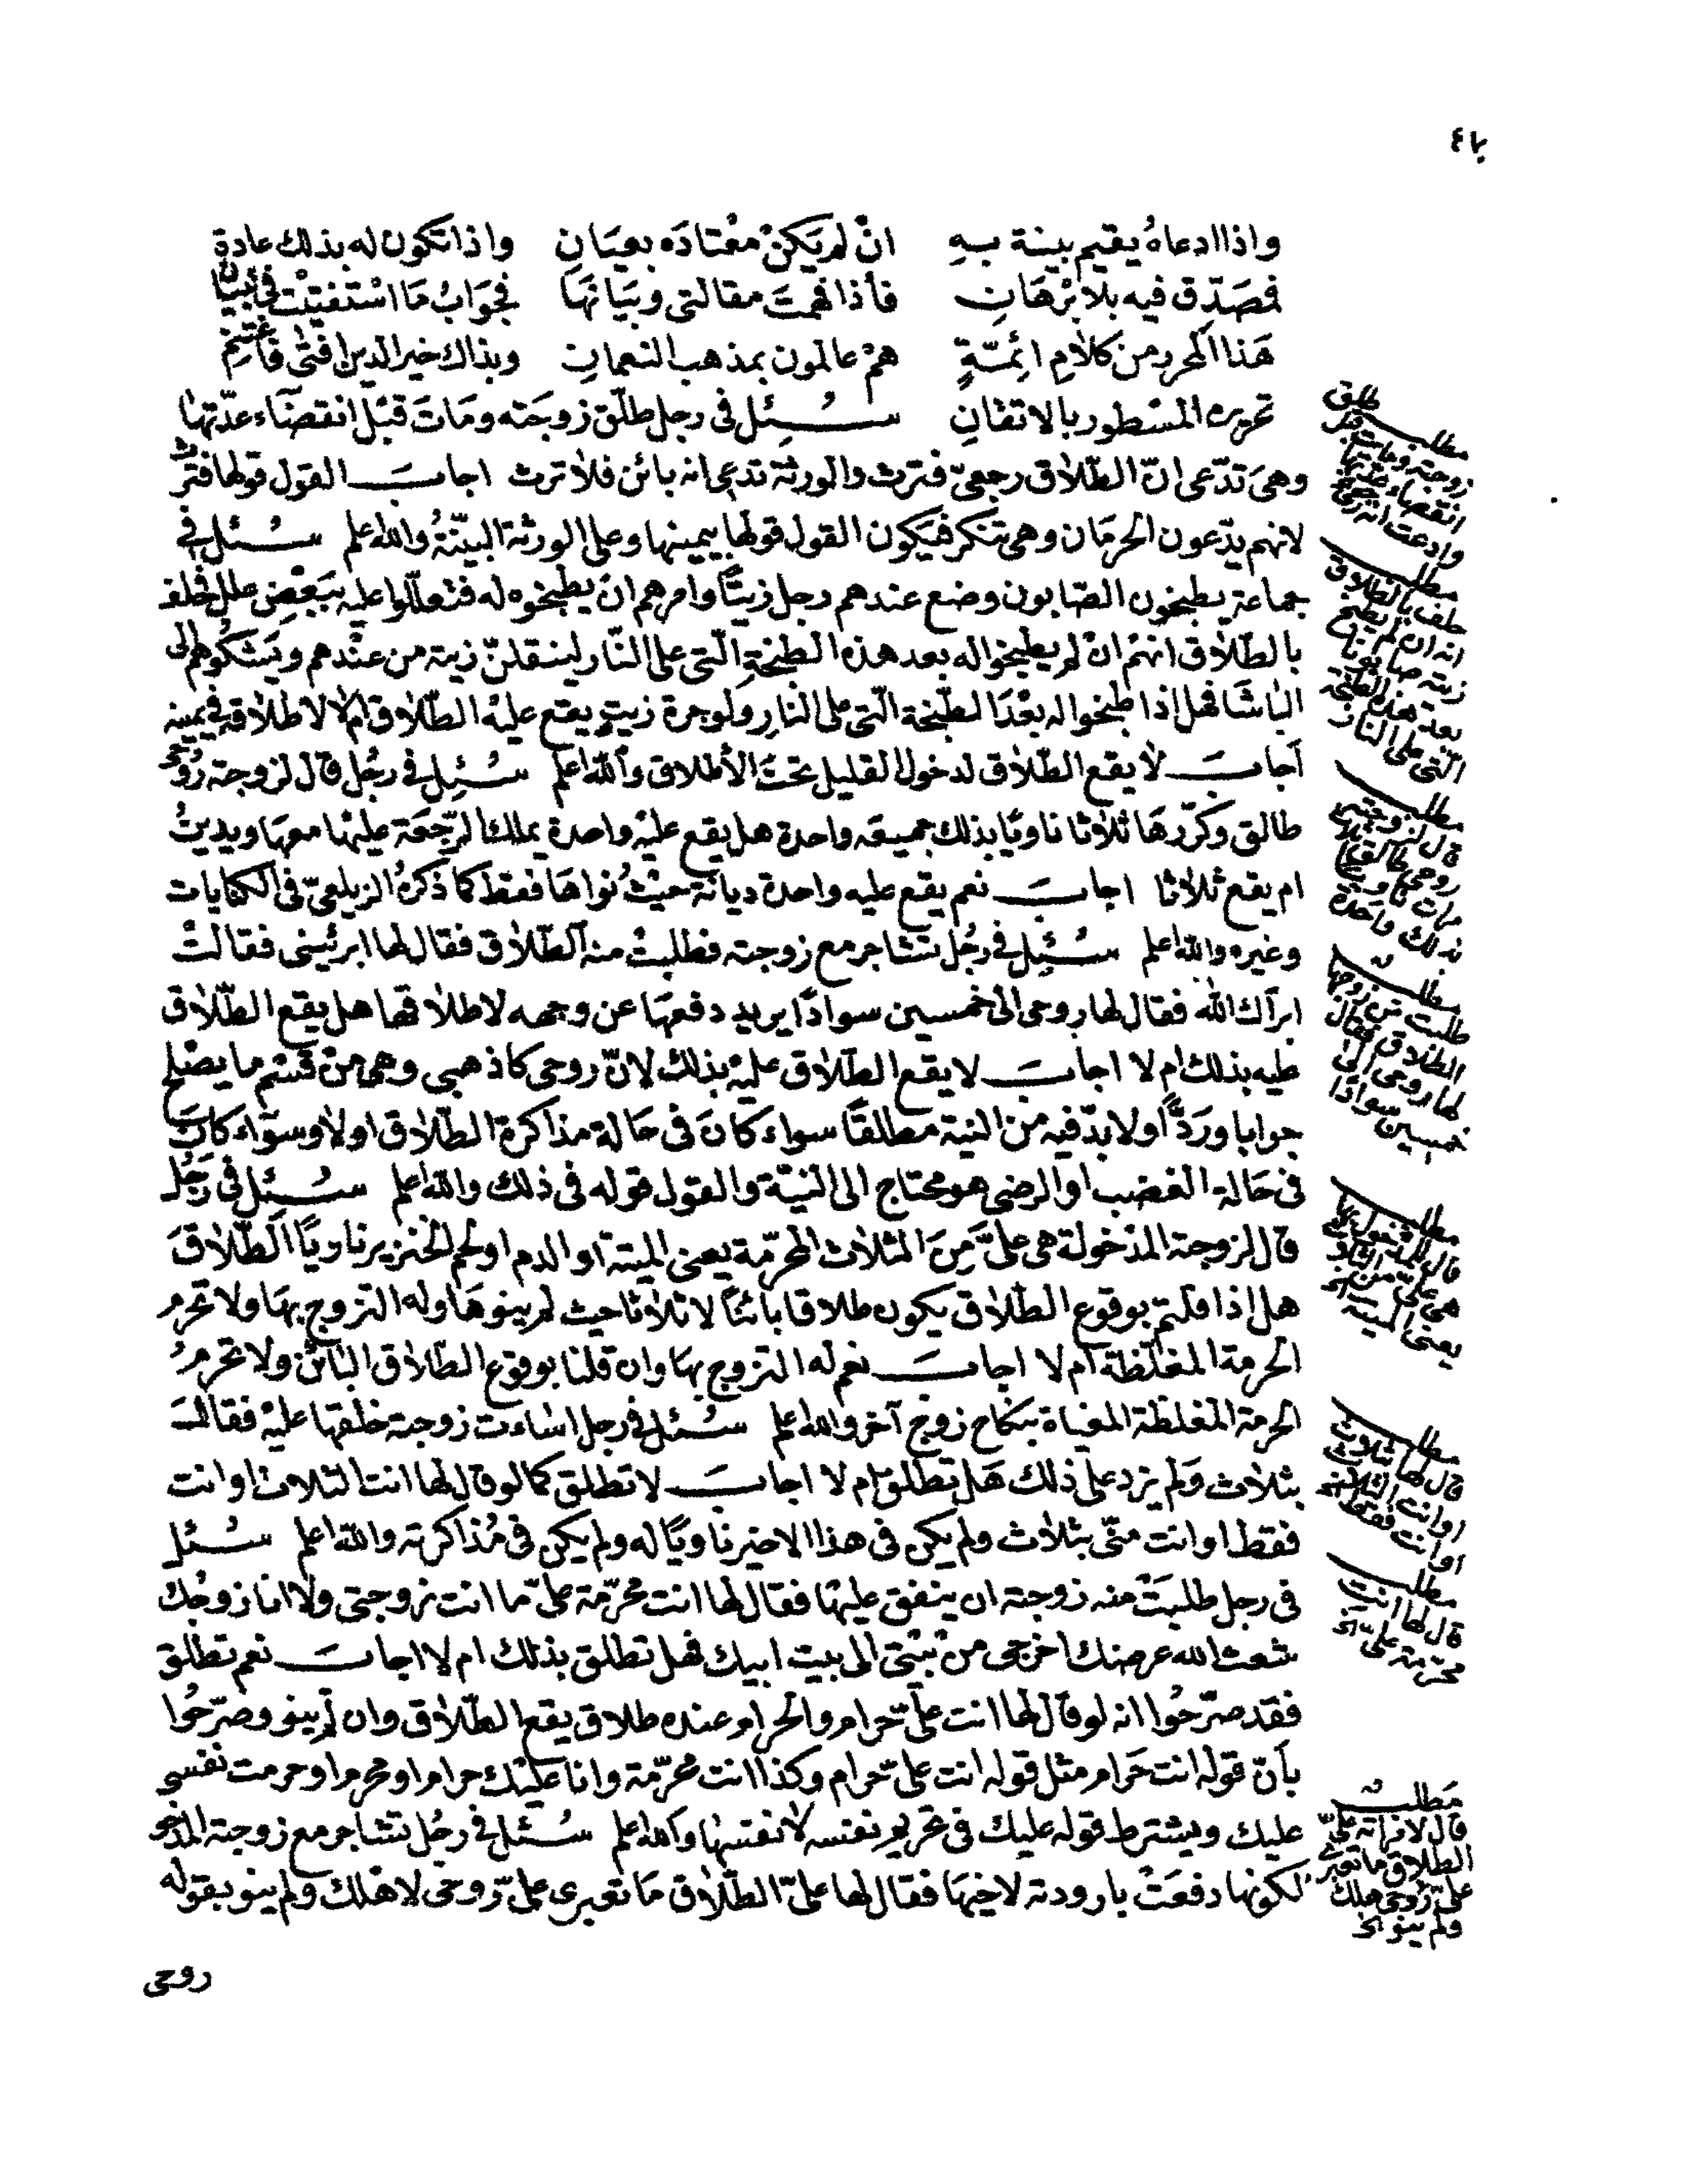 واذا ادعاه يقيم بينة به انْ لم يَكنْ معْتادَه بعيَانِ واذا تكون له بذلك عادة
فصَدّق فيه بلا برْهَانِ فأذا فهمتَ مقالتى وبيَانهَا فجوَابُ مَا اسْتفتيْتْ فى
هَذا المحرر من كلامِ ائِمّةٍ همْ عالمون بمذهب النعمانِ وبذاك خير الدين افتى فاغتنم
تحريره المسْطور بالاتقانِ سُئِل فى رجل طلّق زوجَته ومَاتَ قبْل انقضآء عدّتها
وهىَ تدّعى انّ الطّلاق رجعىّ فترث والورثة تدعى انه بائن فلا ترث اجابَ القول قولها فترث
لانهم يدّعون الحرمَان وهى تنكر فيكون القول قولها بيمينها وعلى الورثة البيّنةُ والله اعلم سُئل فى
جماعة يطبخون الصّابون وضع عندهم رجل زيتًا وامرهم انْ يطبخوه له فتعلّلوا عليه ببَعْض علل فحلف
بالطّلاق انهمْ انْ لم يطبخوا له بعد هذه الطبخةِ الّتى على النّار لينقلنّ زيته من عنْدهم ويَشكوهم الى
الباشَا فهل اذا طبخوا له بعْدَ الطّبخة الّتى على النارِ ولو جرة زيتٍ يقع عليْه الطّلاق ام لا لاطلاقه فى يمينه
اَجابَ لا يقع الطّلاق لدخول القليل تحتَ الأطلاق والله اعلم سُئِل فى رجُل قال لزوجته رُوحى
طالق وكرّرهَا ثلاثا ناويًا بذلك جميعَه واحدة هل يقع عليْه واحدة يملك الرّجْعَة عليْها معهَا ويديّنُ
ام يقع ثلاثا اجابَ نعم يقع عليه واحدة ديانة حيْثُ نواهَا فقط كما ذكرهُ الزيلعىّ فى الكنايات
وغيره والله اعلم سُئِل فى رجُل تشاجر مع زوجته فطلبتْ منه الطّلاق فقال لها ابرئينى فقالتْ
ابرأك الله فقال لها روحى الى خمسين سوادًا يريد دفعهَا عن وجهه لا طلاقها هل يقع الطّلاق
عليه بذلك ام لا اجابَ لا يقع الطّلاق عليْه بذلك لانّ روحى كاذهبى وهى منْ قسْم ما يصْلح
جوابا ورَدًّا ولا بدّ فيه من النية مطلقًا سواء كانَ فى حَالة مذاكرة الطّلاق او لا وسوَاء كانَ
فى حَالة الغضب او الرضى هو محتاج الى النيّة والقول قوله فى ذلك والله اعلم سُئِل فى رَجُل
قال لزوجته المدْخولة هى علىَّ مِنَ الثلاث المحرّمة يعنى الميتة او الدم او لحم الخنزير ناويًا الطّلاقَ
هل اذا قلتم بوقوع الطّلاق يكون طلاقا بائنًا لا ثلاثا حيث لم ينوهَا وله التزوج بهَا ولا تحرم
الحرمة المغلّظة ام لا اجابَ نعم له التزوج بهَا وان قلنا بوقوع الطّلاق البائن ولا تحرم
الحرمة المغلظة المغياة بنكاح زوج آخر والله اعلم سُئل فى رجل اساءت زوجته خلقها عليْه فقالتَ
بثلاث ولم يزد على ذلك هَل تطلق ام لا اجابَ لا تطلق كما لو قال لها انت الثلاث او انت
فقط او انت منّى بثلاث ولم يكن فى هذا الاخير ناويًا له ولم يكن فى مُذاكرته والله اعلم سُئل
فى رجل طلبَتْ منه زوجته ان ينفق عليْهَا فقال لها انت محرّمة علىّ ما انت زوجتى ولا انا زوجُك
شعث الله عرضك اخرجى منْ بيْتى الى بيت ابيك فهل تطلق بذلك ام لا اجابَ نعم تطلق
فقد صرّحُوا انه لو قال لها انت علىّ حرام والحرام عنده طلاق يقع الطّلاق وان لم ينو وصرّحُوا
بأنّ قوله انت حَرام مثل قوله انت علىّ حرام وكذا انت محرّمة وانا عليْك حرام او محرم او حرمت نفسى
عليك ويشترط قوله عليك فى تحريم نفسه لا نفسهَا والله اعلم سُئل فى رجُل تشاجر مع زوجته المدخو
لكونها دفعَتْ بارودته لاخيهَا فقال لها علىّ الطّلاق مَا تعبرى علىّ روحى لاهلك ولم ينو بقوله
روحى
مطلب طلق
زوجته ومات قبل
انقضاء عدتها
وادعت انه رجعى
مطلب
حلف بالطلاق
انه ان لم يطبخ
زيته صابونا
بعد هذه الطبخة
التى على النار
مطلب
قال لزوجته
روحى طالق ثلاث
مرات ناويا
بذلك واحدة
مطلب
طلبت من زوجها
الطلاق فقال
لها روحى الى
خمسين سوادا
مطلب
قال للمدخول بها
هى علىّ من الثلاث
يعنى الميتة الخ
مطلب
قال لها بثلاث
او انت الثلاث
او انت فقط
مطلب
قال لها انت
محرّمة علىّ الخ
مَطلب
قال لامراته علىّ
الطلاق ما تعبرى
علىّ روحى لاهلك
ولم ينو الخ